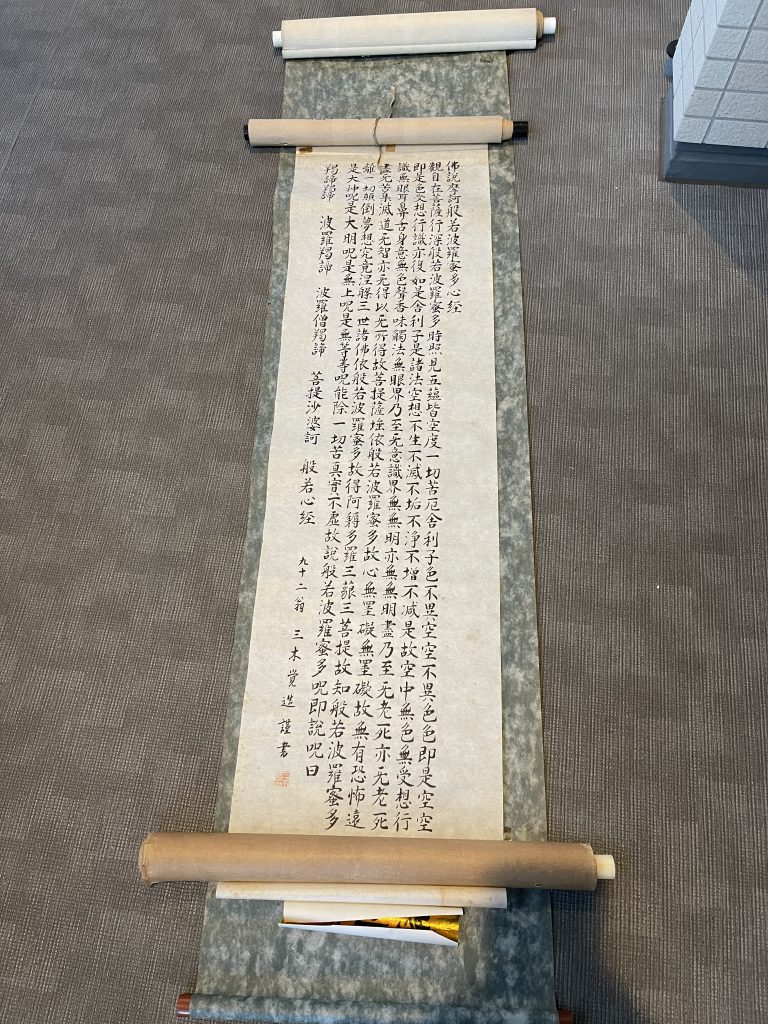 佛説摩訶般若波羅蜜多心経
觀自在菩薩行深般若波羅蜜多時照見五蘊皆空度一切苦厄舍利子色不異空空不異色色即是空空
即是色受想行識亦復如是舍利子是諸法空想不生不滅不垢不浄不増不减是故空中無色無受想行
識無眼耳鼻舌身意無色聲香味觸法無眼界乃至无意識界無無明亦無無明盡乃至无老死亦无老死
盡无苦集滅道无智亦无得以无所得故菩提薩埵依般若波羅蜜多故心無罣礙無罣礙故無有恐怖遠
離一切顛倒夢想究竟涅槃三世諸佛依般若波羅蜜多故得阿耨多羅三藐三菩提故知般若波羅蜜多
是大神呪是大明呪是無上呪是無等等呪能除一切苦真實不虚故説般若波羅蜜多呪即説呪曰
羯諦羯諦 波羅羯諦 波羅僧羯諦 菩提沙婆訶 般若心経
九十二翁 三木覚造 謹書